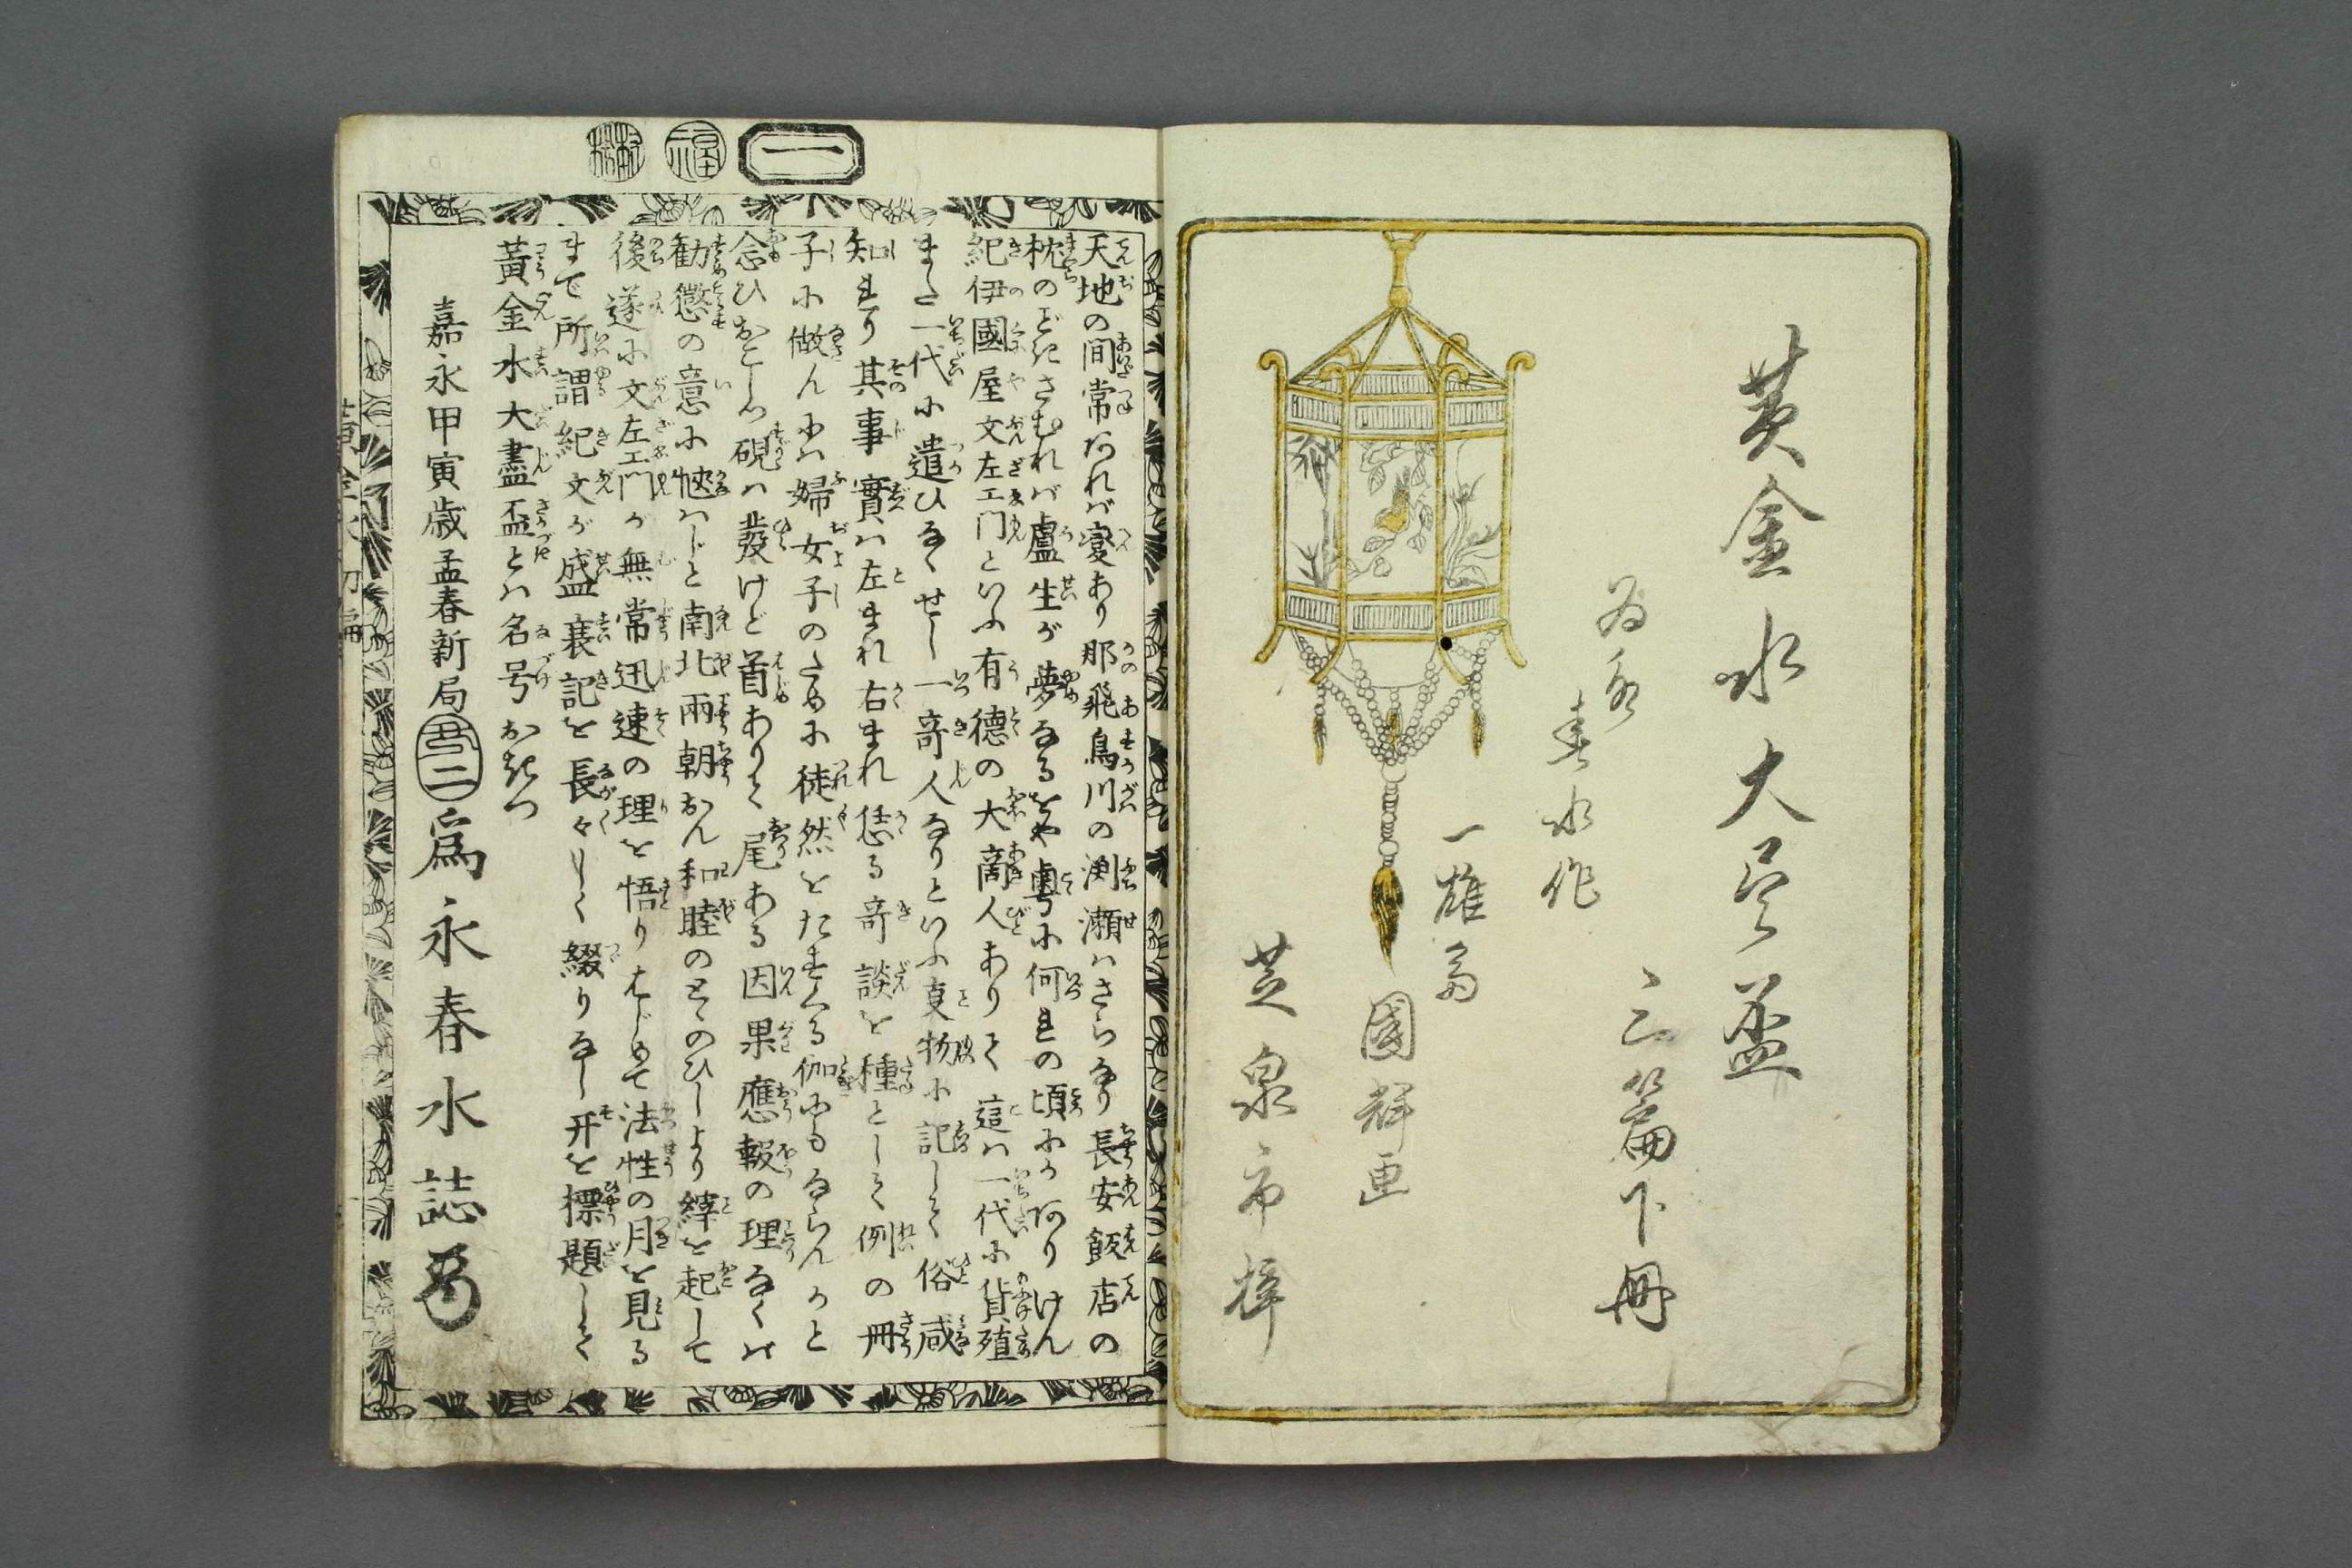 黄金水大尽盃
二篇下冊
為永
春水作
一雄斎
國輝画
芝泉市梓
一
福
天地の間常なれバ変あり那飛鳥川の渕瀬ハさらなり長安飯店の
枕のどきさむれバ盧生が夢なるをや粤に何れの頃にかありけん
紀伊國屋文左エ门といふ有徳の大商人ありて這ハ一代に貨殖
また一代に遣ひなくせし一奇人なりといふ叓物に記して俗咸
知れり其事實ハ左まれ右まれ恁る奇談を種として例の冊
子に做んにハ婦女子のために徒然をたすくる伽にもならんかと
念ひおこしつ硯ハ發けど首ありて尾ある因果應報の理なくバ
勧懲の意に愜ハじと南北兩朝おん和睦のとゝのひしより縡を起して
後遂に文左エ門が無常迅速の理を悟りはじめて法性の月を見る
まで所謂紀文が盛衰記を長々しく綴りなし开を標題として
黄金水大盡盃とハ名号おきつ
嘉永甲寅歳孟春新局
為永春水誌
黄金水初編